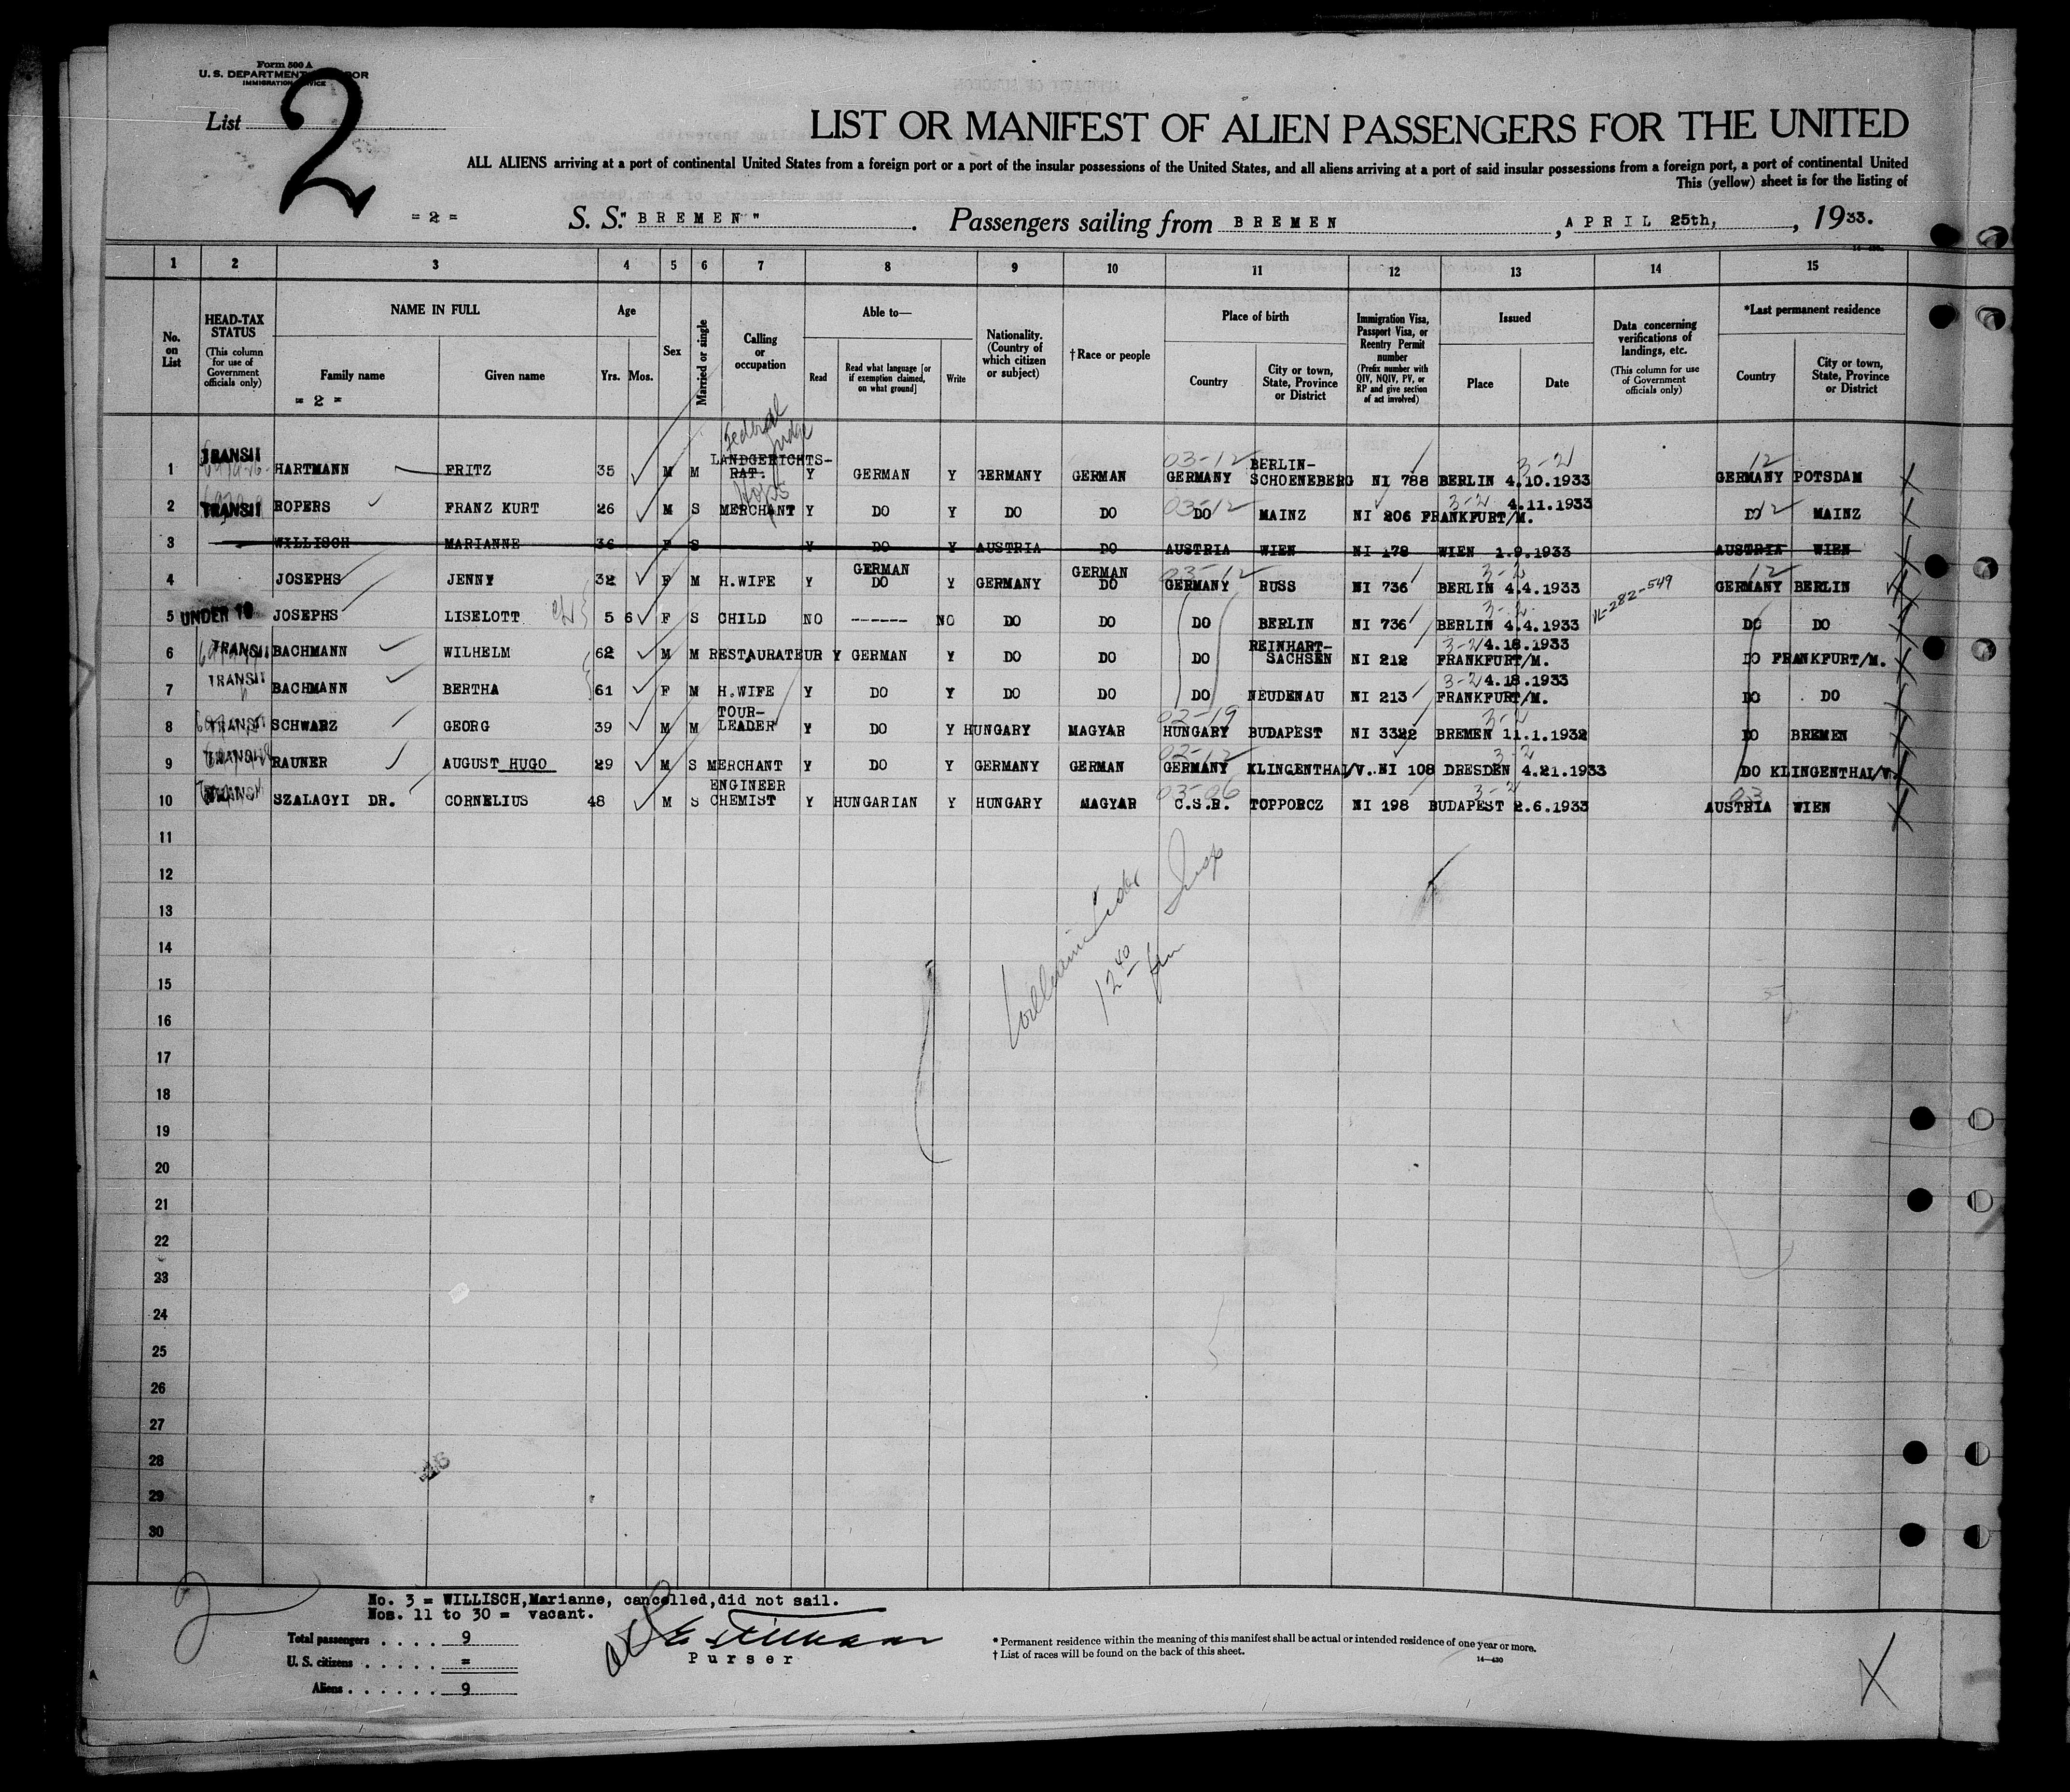 Form 500 A
U. S. DEPARTMENT OF LABOR
IMMIGRATION SERVICE
List 2
LIST OR MANIFEST OF ALIEN PASSENGERS FOR THE UNITED
ALL ALIENS arriving at a port of continental United States from a foreign port or a port of the insular possessions of the United States, and all aliens arriving at a port of said insular possessions from a foreign port, a port of continental United
This (yellow) sheet is for the listing of
= 2 = S. S. "BREMEN". Passengers sailing from BREMEN, APRIL 25th, , 1933.
1 2 3 4 5 6 7 8 9 10 11 12 13 14 15
No. on List
HEAD-TAX STATUS (This column for use of Government officials only)
NAME IN FULL
Family name
Given name
= 2 =
Age
Yrs. Mos.
Sex
Married or single
Calling or occupation
Able to—
Read
Read what language [or if exemption claimed, on what ground]
Write
Nationality. (Country of which citizen or subject)
†Race or people
Place of birth
Country
City or town, State, Province or District
Immigration Visa, Passport Visa, or Reentry Permit number (Prefix number with QIV, NQIV, PV, or RP and give section of act involved)
Issued
Place
Date
Data concerning verifications of landings, etc. (This column for use of Government officials only)
*Last permanent residence
Country
City or town, State, Province or District
Federal Judge
1 TRANSIT HARTMANN FRITZ 35 M M LANDGERICHTS-RAT. Y GERMAN Y GERMANY GERMAN 03-12 GERMANY BERLIN-SCHOENEBERG NI 788 BERLIN 3-2 4.10.1933 12 GERMANY POTSDAM
2 TRANSIT ROPERS FRANZ KURT 26 M S Hops MERCHANT Y DO Y DO DO 03-12 DO MAINZ NI 206 FRANKFURT/M. 3-2 4.11.1933 12 DO MAINZ
3 WILLISCH MARIANNE 36 F S Y DO Y AUSTRIA DO AUSTRIA WIEN NI 178 WIEN 1.9.1933 AUSTRIA WIEN
4 JOSEPHS JENNY 32 F M H.WIFE Y GERMAN DO Y GERMANY GERMAN DO 03-12 GERMANY RUSS NI 736 BERLIN 3-2 4.4.1933 12 GERMANY BERLIN
5 UNDER 16 JOSEPHS LISELOTT 5 6 F S CHILD NO ------- NO DO DO DO BERLIN NI 736 BERLIN 3-2 4.4.1933 VL-282-549 DO DO
6 TRANSIT BACHMANN WILHELM 62 M M RESTAURATEUR Y GERMAN Y DO DO DO REINHART-SACHSEN NI 212 3-2 4.18.1933 FRANKFURT/M. DO FRANKFURT/M.
7 TRANSIT BACHMANN BERTHA 61 F M H.WIFE Y DO Y DO DO DO NEUDENAU NI 213 3-2 4.18.1933 FRANKFURT/M. DO DO
8 TRANSIT SCHWARZ GEORG 39 M M TOUR-LEADER Y DO Y HUNGARY MAGYAR 02-19 HUNGARY BUDAPEST NI 3322 BREMEN 3-2 11.1.1932 DO BREMEN
9 TRANSIT RAUNER AUGUST HUGO 29 M S MERCHANT Y DO Y GERMANY GERMAN 02-12 GERMANY KLINGENTHAL/V. NI 108 DRESDEN 3-2 4.21.1933 DO KLINGENTHAL/V.
10 TRANSIT SZALAGYI DR. CORNELIUS 48 M S ENGINEER CHEMIST Y HUNGARIAN Y HUNGARY MAGYAR 03-06 C.S.R. TOPPORCZ NI 198 BUDAPEST 3-2 2.6.1933 03 AUSTRIA WIEN
11
12
13
14
15
16
17
18
19
20
21
22
23
24
25
26
27
28
29
30
Insp
12 40
No. 3 = WILLISCH,Marianne, cancelled,did not sail.
Nos. 11 to 30 = vacant.
Total passengers . . . . 9
U. S. citizens . . . . . =
Aliens . . . . . . 9
Purser
* Permanent residence within the meaning of this manifest shall be actual or intended residence of one year or more.
† List of races will be found on the back of this sheet.
14—430